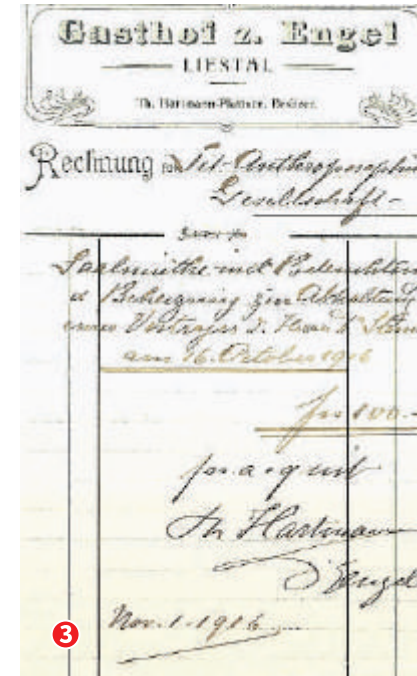 Gasthof z. Engel
LIESTAL
Th. Hartmann-Plattner, Besitzer.
Rechnung für Tit. Anthroposophische
Gesellschaft -
Saalmiethe mit Beleuchtung
u Beheizung zur Abhaltung
eines Vortrages d. Herrn Dr Steiner
am 16. October 1916
frs 100.-
per acquit
Th Hartmann
z Engel
Nov. 1. 1916
3